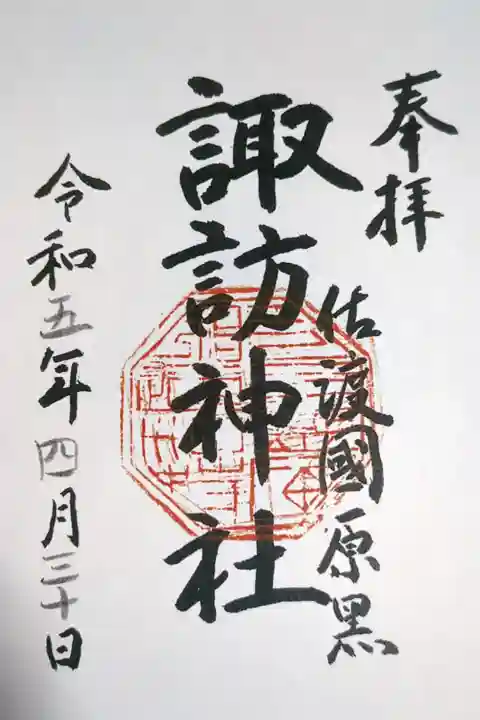 奉拝
佐渡國原黒
諏訪神社
令和五年四月三十日